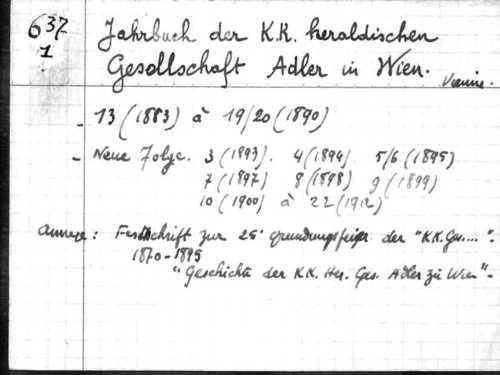 637
1
Jahrbuch der K.K. heraldischen
Gesellschaft Adler in Wien.
Vienne.
- 13 (1883) à 19/20 (1890)
- Neue Folge. 3 (1893). 4 (1894) 5/6 (1895)
7 (1897) 8 (1898) 9 (1899)
10 (1900) à 22 (1912)
Annexe : Festschrift zur 25. grundungsfeier der "K.K. Ges....".
1870-1895
"Geschichte der K.K. Her. Ges. Adler zu Wien".